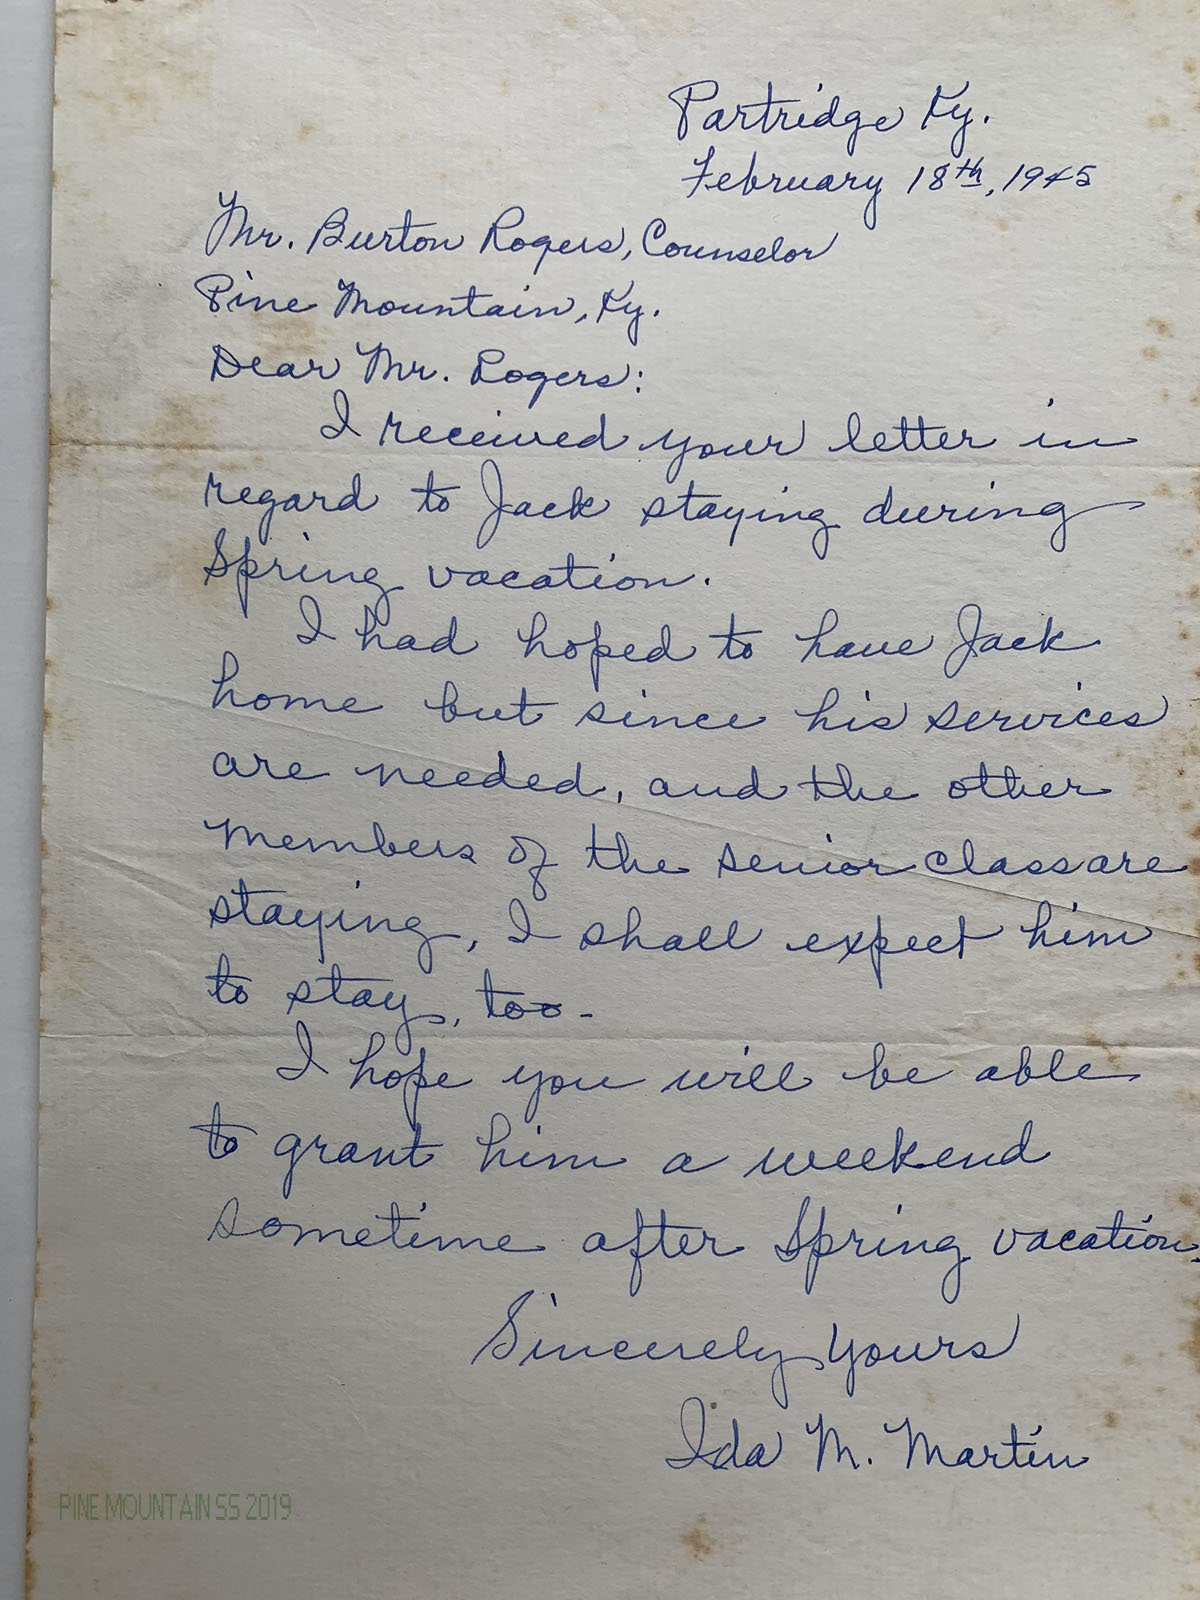 Partridge Ky.
February 18th, 1945
Mr. Burton Rogers, Counselor
Pine Mountain, Ky.
Dear Mr. Rogers:
I received your letter in
regard to Jack staying during
Spring vacation.
I had hoped to have Jack
home but since his services
are needed, and the other
members of the senior class are
staying, I shall expect him
to stay, too.
I hope you will be able
to grant him a weekend
sometime after Spring vacation.
Sincerely yours
Ida M. Martin
PINE MOUNTAIN SS 2019